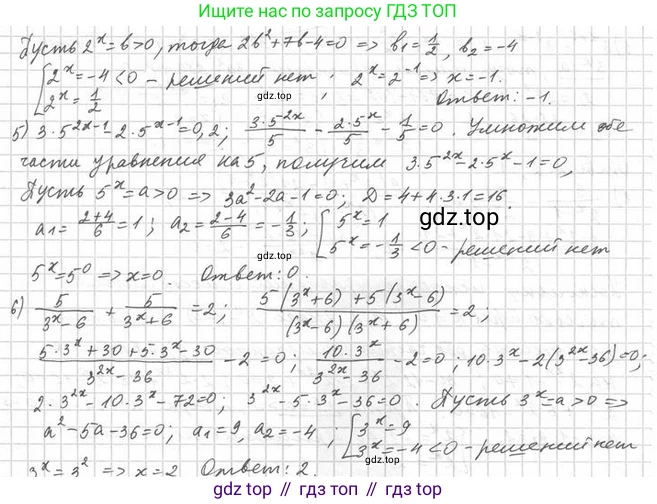 Ищите нас по запросу ГДЗ ТОП
Пусть 2^x=b>0, тогда 2b²+7b-4=0 => b₁=1/2, b₂=-4
[2^x=-4<0 - решений нет; 2^x=2^-1 => x=-1.
[2^x=1/2
Ответ: -1.
5) 3·5^(2x-1)-2·5^(x-1)=0,2; 3·5^(2x)/5 - 2·5^x/5 - 1/5=0. Умножим обе
gdz.top
части уравнения на 5, получим 3·5^(2x)-2·5^x-1=0,
Пусть 5^x=a>0 => 3a²-2a-1=0; D=4+4·3·1=16.
a₁=(2+4)/6=1; a₂=(2-4)/6=-1/3; [5^x=1
gdz.top
[5^x=-1/3<0 - решений нет
5^x=5^0 => x=0. Ответ: 0.
gdz.top
6) 5/(3^x-6) + 5/(3^x+6) = 2; (5(3^x+6)+5(3^x-6))/((3^x-6)(3^x+6)) = 2;
(5·3^x+30+5·3^x-30)/(3^(2x)-36) - 2 = 0; 10·3^x/(3^(2x)-36) - 2=0; 10·3^x-2(3^(2x)-36)=0;
2·3^(2x)-10·3^x-72=0; 3^(2x)-5·3^x-36=0. Пусть 3^x=a>0 =>
a²-5a-36=0; a₁=9, a₂=-4; [3^x=9
[3^x=-4<0 - решений нет
3^x=3² => x=2 Ответ: 2.
gdz.top
gdz.top // гдз.топ // gdz.top